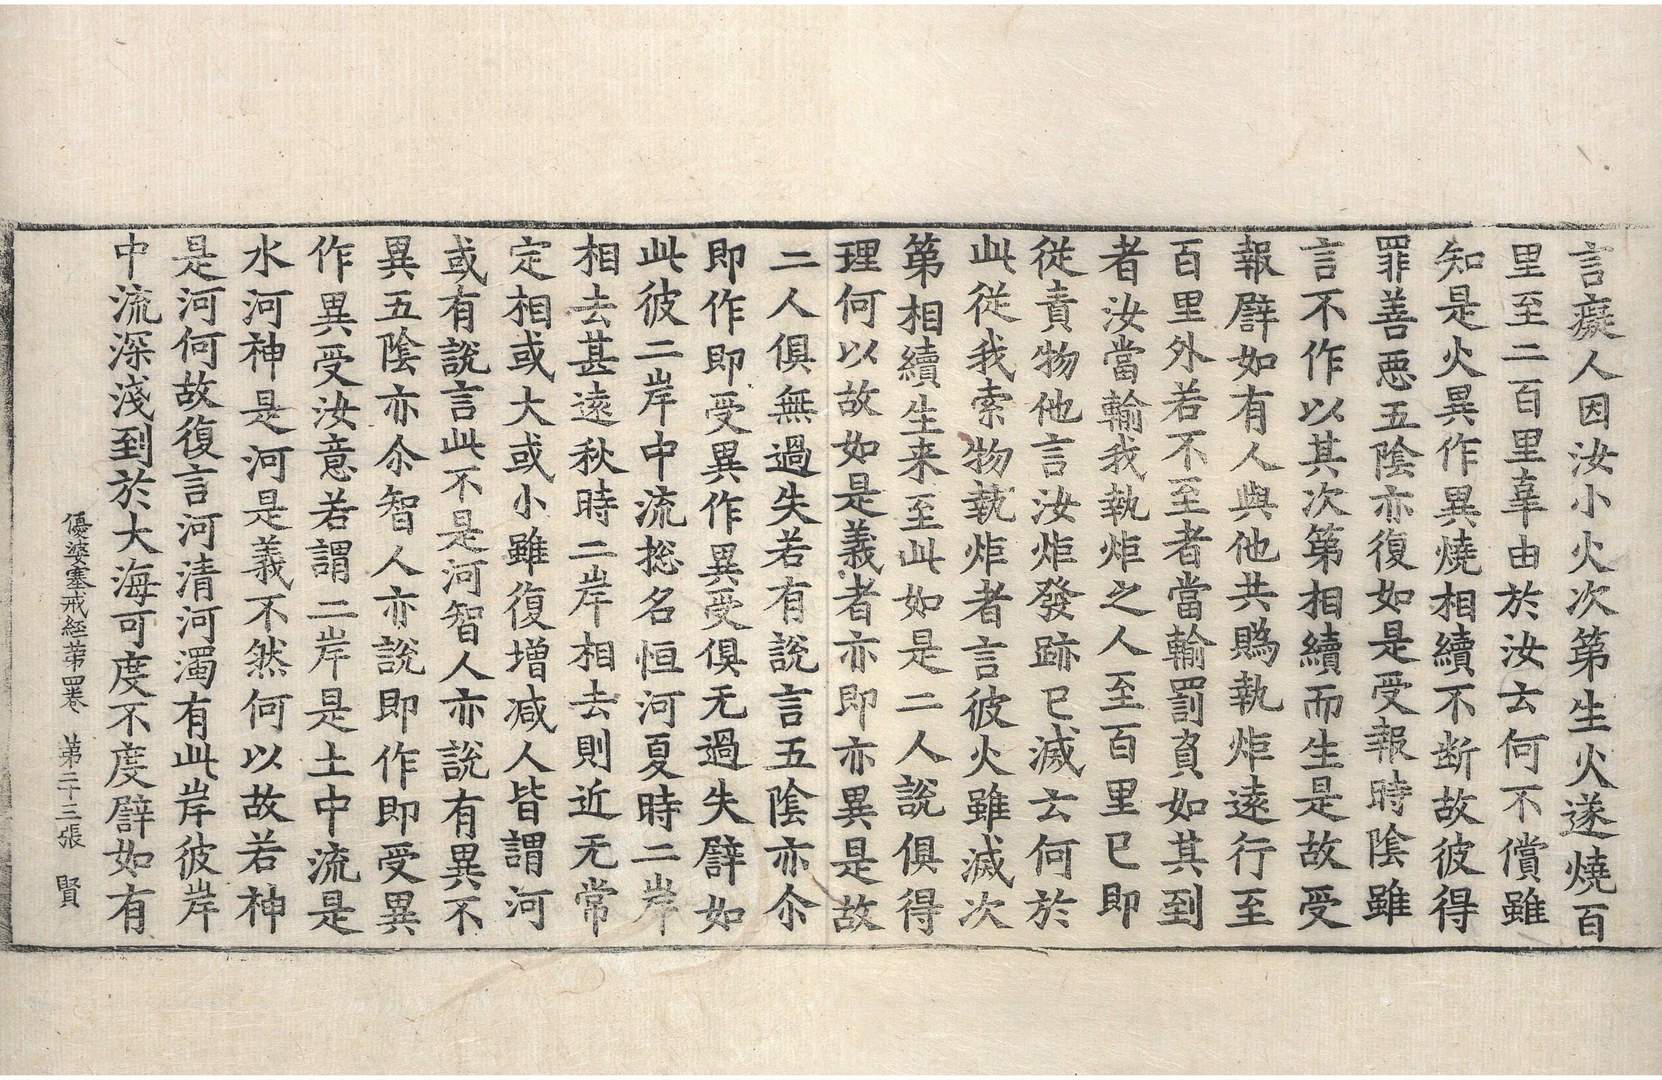 言癡人因汝小火次第生火遂燒百
里至二百里辜由於汝云何不償雖
知是火異作異燒相續不断故彼得
罪善悪五隂亦復如是受報時隂雖
言不作以其次第相續而生是故受
報譬如有人與他共賭執炬遠行至
百里外若不至者當輸罰負如其到
者汝當輸我執炬之人至百里已即
従責物他言汝炬發跡已滅云何於
此従我索物執炬者言彼火雖滅次
第相續生来至此如是二人說俱得
理何以故如是義者亦即亦異是故
二人俱無過失若有說言五隂亦尒
即作即受異作異受俱无過失譬如
此彼二岸中流揔名恒河夏時二岸
相去甚遠秋時二岸相去則近无常
定相或大或小雖復增减人皆謂河
或有說言此不是河智人亦說有異不
異五隂亦尒智人亦說即作即受異
作異受汝意若謂二岸是土中流是
水河神是河是義不然何以故若神
是河何故復言河清河濁有此岸彼岸
中流深淺到於大海可度不度譬如有
優婆塞戒経第四卷 第二十三張 賢